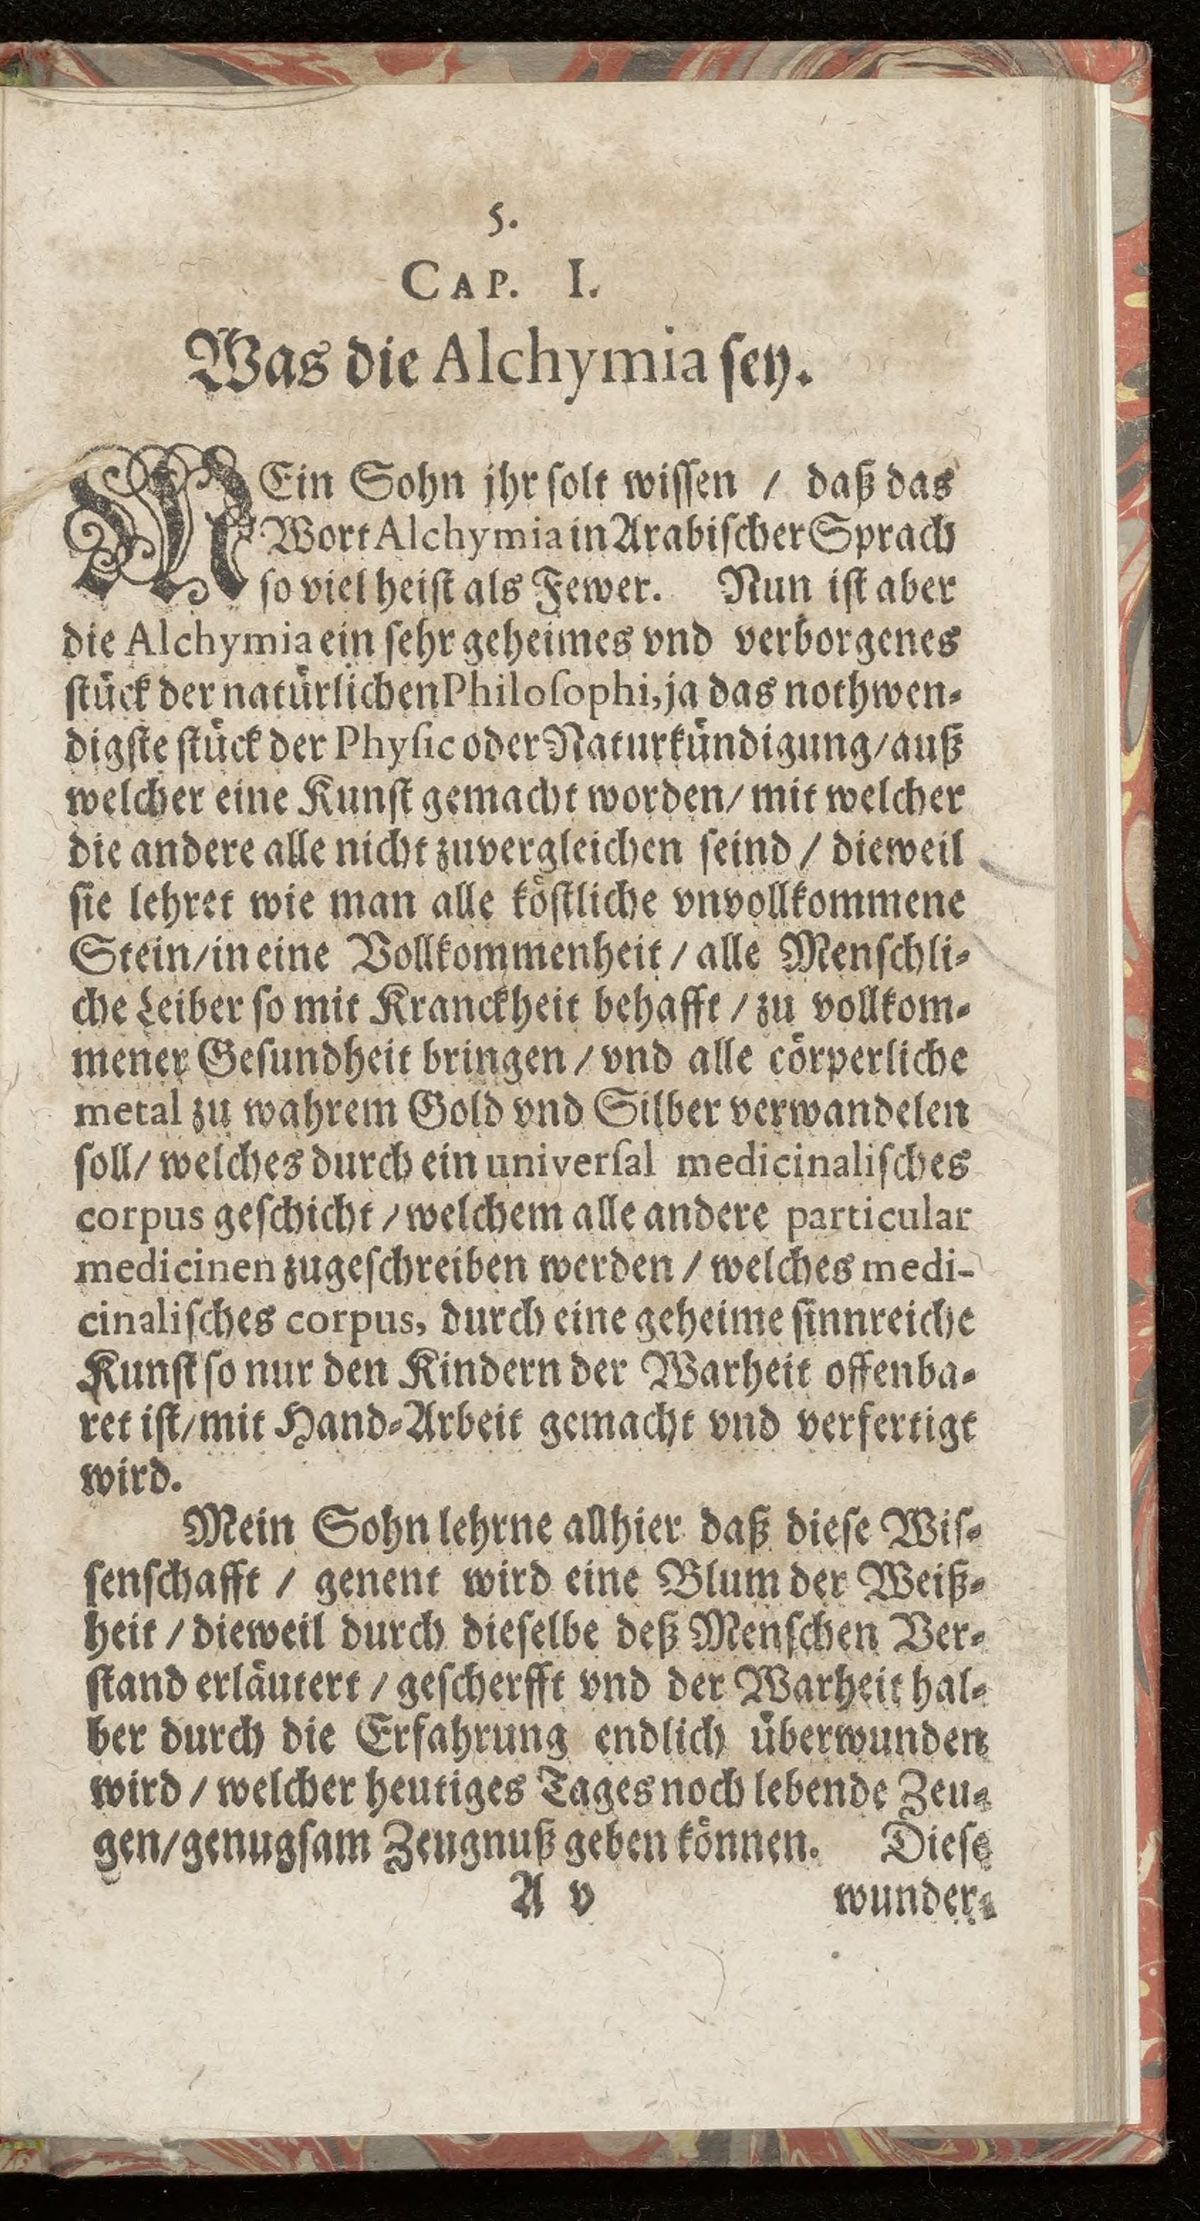 5.
CAP. I.
Was die Alchymia sey.
MEin Sohn jhr solt wissen / daß das
Wort Alchymia in Arabischer Sprach
so viel heist als Fewer. Nun ist aber
die Alchymia ein sehr geheimes vnd verborgenes
stück der natürlichen Philosophi, ja das nothwen-
digste stück der Physic oder Naturkündigung/ auß
welcher eine Kunst gemacht worden/ mit welcher
die andere alle nicht zuvergleichen seind / dieweil
sie lehret wie man alle köstliche vnvollkommene
Stein/ in eine Vollkommenheit / alle Menschli-
che Leiber so mit Kranckheit behafft / zu vollkom-
mener Gesundheit bringen / vnd alle cörperliche
metal zu wahrem Gold vnd Silber verwandelen
soll/ welches durch ein universal medicinalisches
corpus geschicht / welchem alle andere particular
medicinen zugeschreiben werden / welches medi-
cinalisches corpus, durch eine geheime sinnreiche
Kunst so nur den Kindern der Warheit offenba-
ret ist/ mit Hand-Arbeit gemacht vnd verfertigt
wird.
Mein Sohn lehrne allhier daß diese Wis-
senschafft / genent wird eine Blum der Weiß-
heit / dieweil durch dieselbe deß Menschen Ver-
stand erläutert / gescherfft vnd der Warheit hal-
ber durch die Erfahrung endlich überwunden
wird / welcher heutiges Tages noch lebende Zeu-
gen/ genugsam Zeugnuß geben können. Diese
A v wunder-